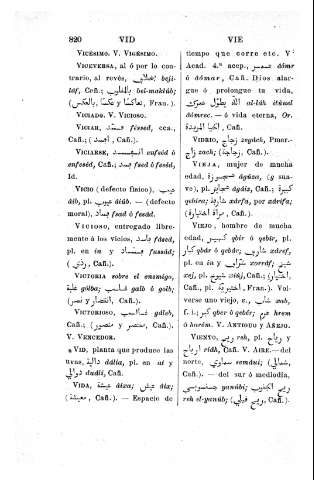 820 VID VIE
VICÉSIMO. V. VIGÉSIMO.
VICEVERSA, al ó por lo con-
trario, al revés, بخلاف beji-
láf, Cañ.; بالمقلوب bel-maklúb;
(عكسا y بالعكس, Fran.).
VICIADO. V. VICIOSO.
VICIAR, فسّد fássed, cca.,
Cañ.; (افسد, Cañ.).
VICIARSE, انفسد enfséd ó
enfoséd, Cañ.; فسد fsed ó fasád,
Id.
VICIO (defecto físico), عيب
áib, pl. عيوب áiúb. — (defecto
moral), فساد fsad ó fasád.
VICIOSO, entregado libre-
mente á los vicios, فاسد fásed,
pl. en in y فسّاد fussád;
(ردي, Cañ.).
VICTORIA sobre el enemigo,
غلبة gólba; غلب galb ó golb;
(نصر y انتصار, Cañ.).
VICTORIOSO, غالب gáleb,
Cañ.; (منصور y منتصر, Cañ.)
V. VENCEDOR.
VID, planta que produce las
uvas, دالية dália, pl. en at y
دوالي duálí, Cañ.
VIDA, عيشة áixa; عيش áix;
(معيشة, Cañ.). — Espacio de
tiempo que corre etc. V
Acad. 4.ª acep., عمر dómr
ó dómar, Cañ. Dios alar-
gue ó prolongue tu vida,
الله يطول عمرك al-láh itúuel
dómrec. — ó vida eterna, Or.
الحيا المويدة, Cañ.
VIDRIO, زجاج zeyách, Pmor.-
زاج zach; (زجاجة, Cañ.).
VIEJA, mujer de mucha
edad, عجوزة ágúza, (g sua-
ve), pl. عجايز ágáiz, Cañ.; كبيرة
qebíra; شارفة xárfa, por xárifa;
(مراة اختيارة, Cañ.).
VIEJO, hombre de mucha
edad, كبير qbir ó qebír, pl.
كبار qbár ó qebár; شارف xáref,
pl. en in y شراف xorráf; شيخ
xej, pl. شيوخ xiúj, Cañ.; (اختيار,
Cañ., pl. اختيارية, Fran.). Vol-
verse uno viejo, c., شاب xab,
f. i.; كبر qber ó qebér; هرم hrem
ó harém. V. ANTIGUO y AÑEJO.
VIENTO, ريح reh, pl. رياح y
ارياح riáh, Cañ. V. AIRE.—del
norte, سماوي semáuí; (شمالي,
Cañ.). — del sur ó mediodia,
ريح الجنوب yanúbí; جنوبي
reh el-yanúb; (ريح قبلي, Cañ.).